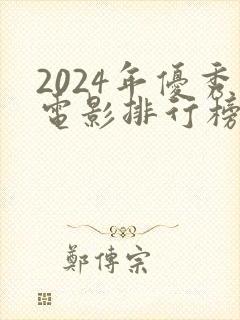 2024年優秀
電影排行榜
鄭傳宗